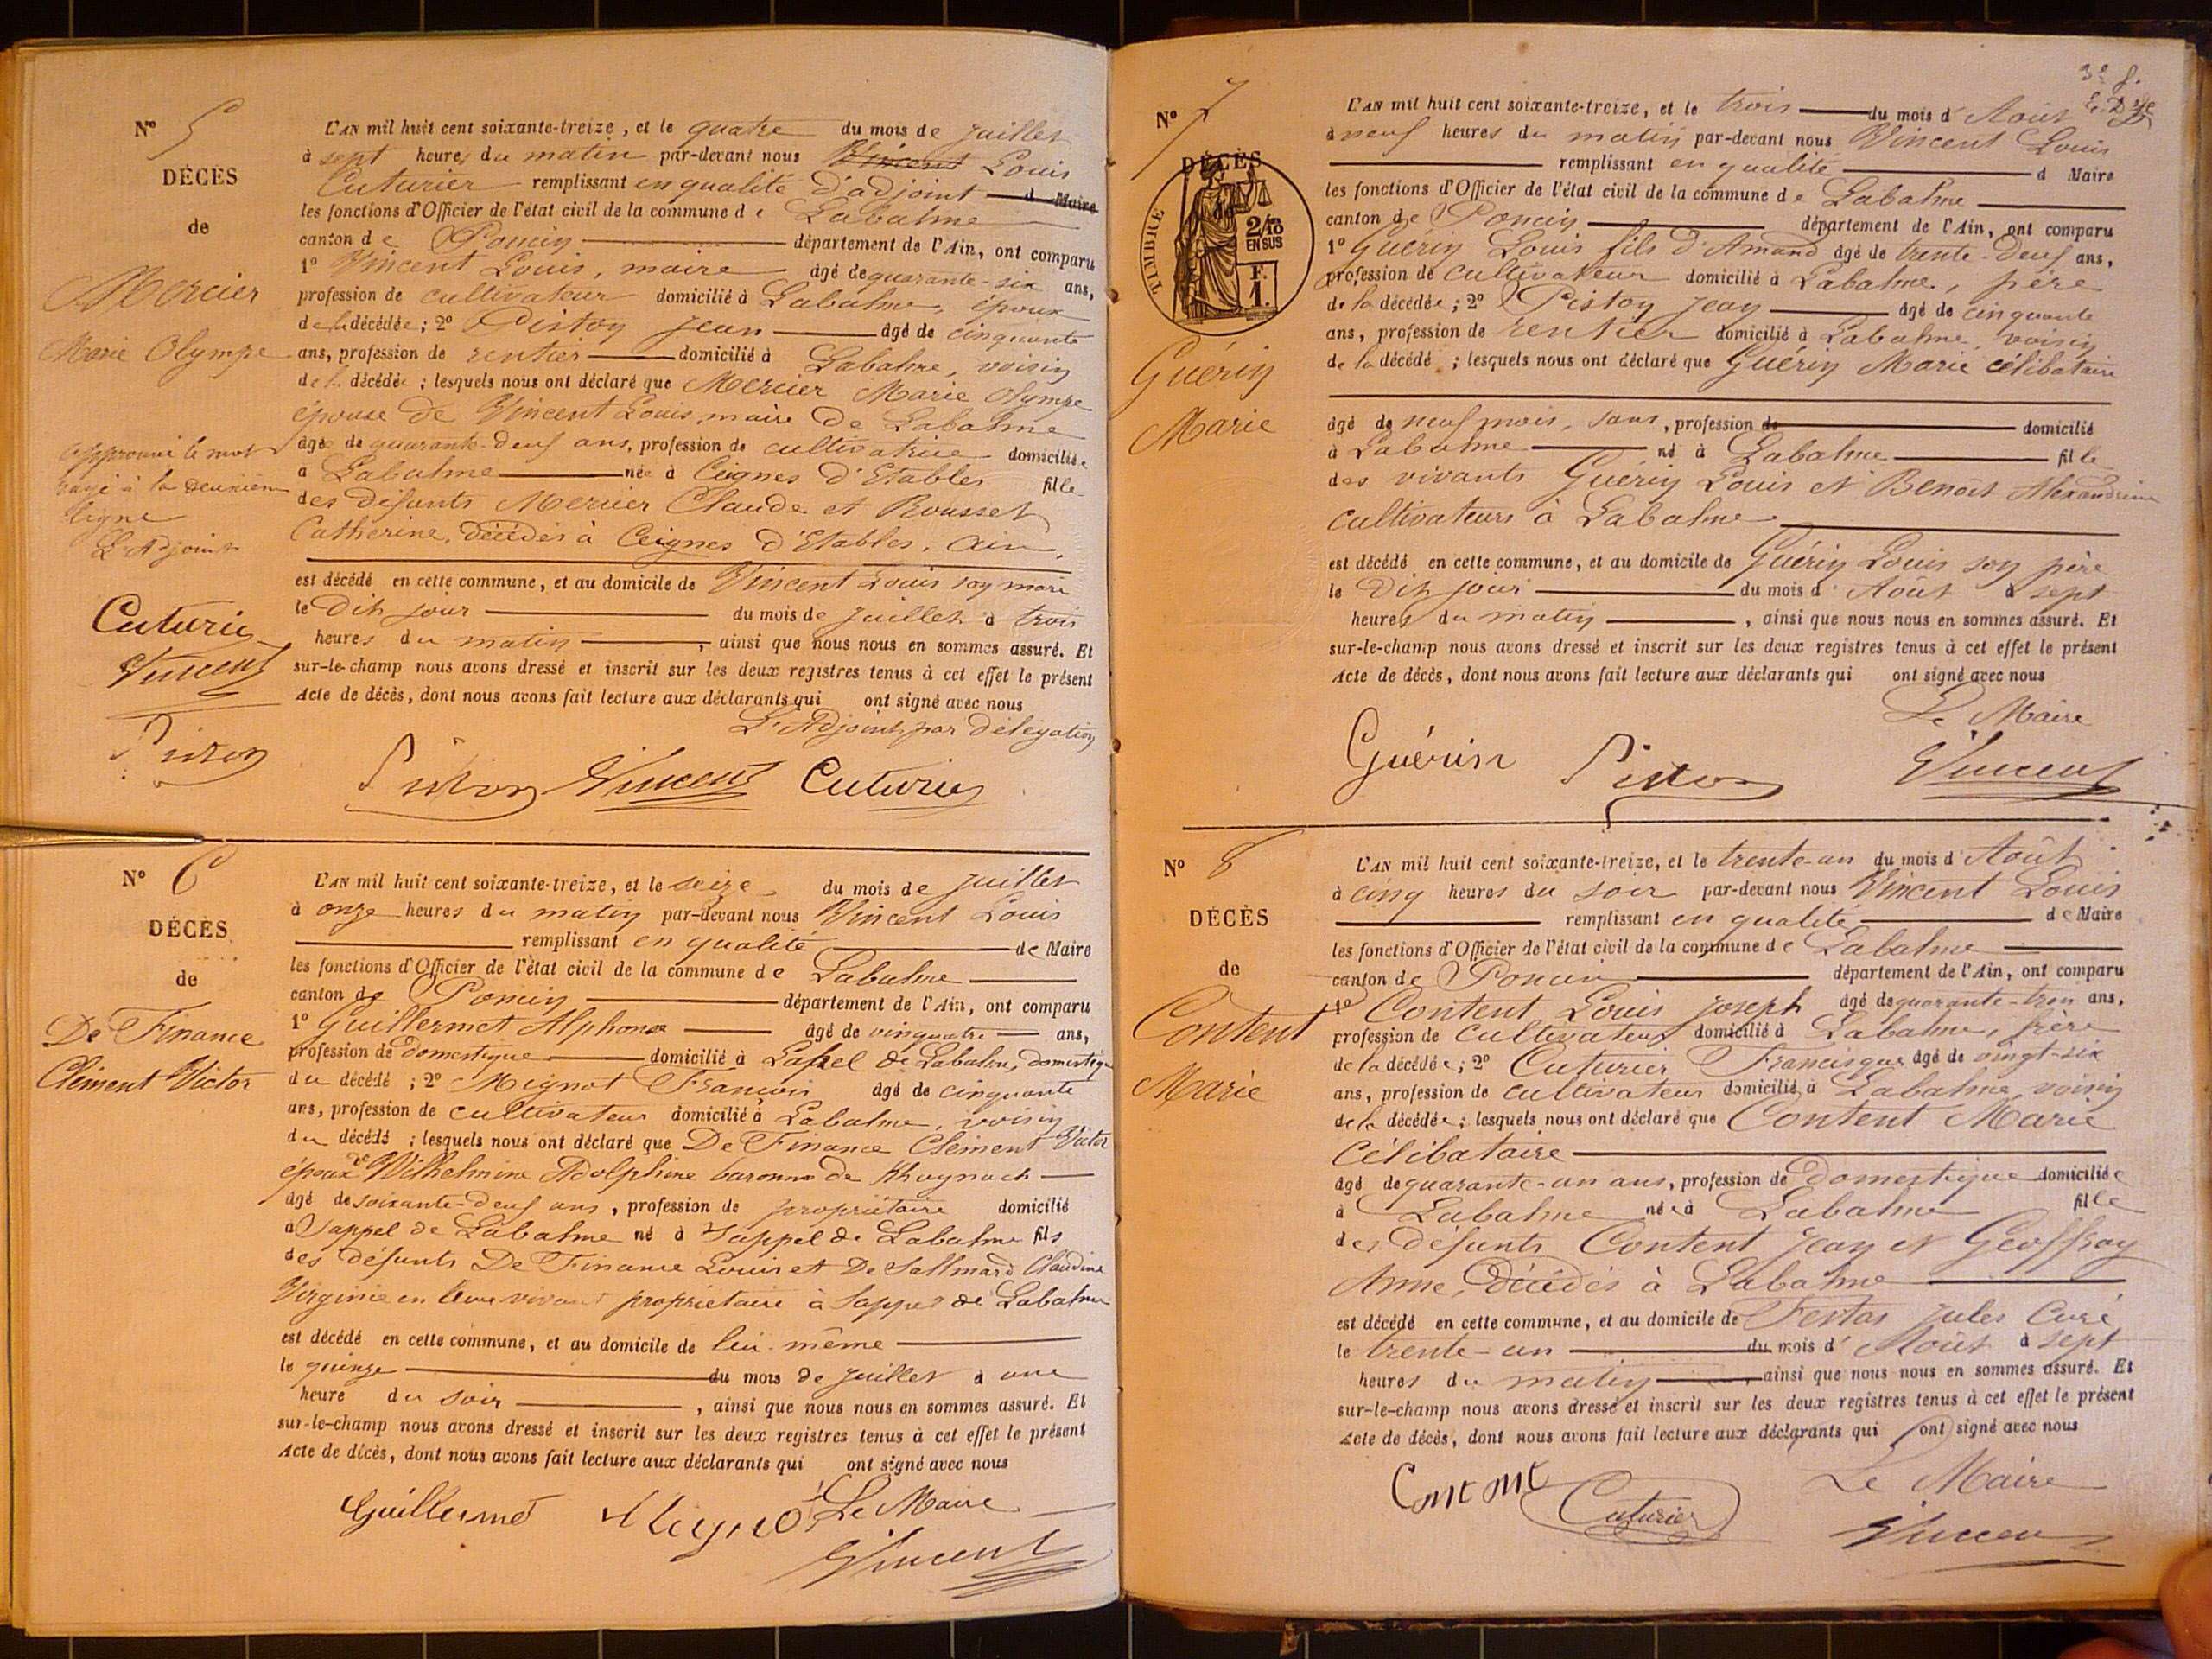 N° 5
DÉCÈS
de
Mercier
Marie Olympe
approuvé le mot
rayé à la deuxième
ligne
L'Adjoint
Cuturier
Vincent
Piston
L'AN mil huit cent soixante-treize, et le quatre du mois de juillet
à sept heures du matin par-devant nous Vincent Louis
Cuturier remplissant en qualité d'adjoint d Maire
les fonctions d'Officier de l'état civil de la commune de Labalme
canton de Poncin département de l'Ain, ont comparu
1° Vincent Louis, maire âgé de quarante-six ans,
profession de cultivateur domicilié à Labalme, époux
de la décédée ; 2° Piston Jean âgé de cinquante
ans, profession de rentier domicilié à Labalme, voisin
de la décédée ; lesquels nous ont déclaré que Mercier Marie Olympe
épouse de Vincent Louis, maire de Labalme
âgée de quarante-deux ans, profession de cultivatrice domiciliée
à Labalme née à Ceignes d'Etables fille
des défunts Mercier Claude et Rousset
Catherine, décédés à Ceignes d'Etables, Ain,
est décédé en cette commune, et au domicile de Vincent Louis son mari
le Dit jour du mois de juillet à trois
heures du matin, ainsi que nous nous en sommes assuré. Et
sur-le-champ nous avons dressé et inscrit sur les deux registres tenus à cet effet le présent
Acte de décès, dont nous avons fait lecture aux déclarants qui ont signé avec nous
L'Adjoint par délégation
Piston Vincent Cuturier
N° 6
DÉCÈS
de
De Finance
Clément Victor
L'AN mil huit cent soixante-treize, et le seize du mois de juillet
à onze heures du matin par-devant nous Vincent Louis
remplissant en qualité de Maire
les fonctions d'Officier de l'état civil de la commune de Labalme
canton de Poncin département de l'Ain, ont comparu
1° Guillermet Alphonse âgé de vinquatre ans,
profession de domestique domicilié à Sappel de Labalme, domestique
du décédé ; 2° Mignot François âgé de cinquante
ans, profession de cultivateur domicilié à Labalme, voisin
du décédé ; lesquels nous ont déclaré que De Finance Clément Victor
époux de Wilhelmine Adolphine baronne de
âgé de soixante-deux ans, profession de propriétaire domicilié
à Sappel de Labalme né à Sappel de Labalme fils
des défunts De Finance Louis et De Sallmard Claudine
Virginie en leur vivant propriétaire à Sappel de Labalme
est décédé en cette commune, et au domicile de lui-même
le quinze du mois de juillet à une
heure du soir, ainsi que nous nous en sommes assuré. Et
sur-le-champ nous avons dressé et inscrit sur les deux registres tenus à cet effet le présent
Acte de décès, dont nous avons fait lecture aux déclarants qui ont signé avec nous
Guillermet Mignot Le Maire
Vincent
3e f.
N° 7
DÉCÈS
de
TIMBRE
2/10
EN SUS
F.
1.
Guérin
Marie
L'AN mil huit cent soixante-treize, et le trois du mois d'Août
à neuf heures du matin par-devant nous Vincent Louis
remplissant en qualité d Maire
les fonctions d'Officier de l'état civil de la commune de Labalme
canton de Poncin département de l'Ain, ont comparu
1° Guérin Louis fils d'Amand âgé de trente-deux ans,
profession de cultivateur domicilié à Labalme, père
de la décédée ; 2° Piston Jean âgé de cinquante
ans, profession de rentier domicilié à Labalme, voisin
de la décédé ; lesquels nous ont déclaré que Guérin Marie célibataire
âgé de neuf mois, sans, profession de domicilié
à Labalme né à Labalme fille
des vivants Guérin Louis et Benoit Alexandrine
cultivateurs à Labalme
est décédé en cette commune, et au domicile de Guérin Louis son père
le Dit jour du mois d'Août à sept
heures du matin, ainsi que nous nous en sommes assuré. Et
sur-le-champ nous avons dressé et inscrit sur les deux registres tenus à cet effet le présent
Acte de décès, dont nous avons fait lecture aux déclarants qui ont signé avec nous
Le Maire
Guérin Piston Vincent
N° 8
DÉCÈS
de
Content
Marie
L'AN mil huit cent soixante-treize, et le trente-un du mois d'Août
à cinq heures du soir par-devant nous Vincent Louis
remplissant en qualité de Maire
les fonctions d'Officier de l'état civil de la commune de Labalme
canton de Poncin département de l'Ain, ont comparu
1° Content Louis Joseph âgé de quarante-trois ans,
profession de cultivateur domicilié à Labalme, frère
de la décédée ; 2° Cuturier Francisque âgé de vingt-six
ans, profession de cultivateur domicilié à Labalme, voisin
de la décédée ; lesquels nous ont déclaré que Content Marie
Célibataire
âgé de quarante-un ans, profession de Domestique domiciliée
à Labalme née à Labalme fille
des défunts Content Jean et Geoffray
Anne, Décédés à Labalme
est décédé en cette commune, et au domicile de Jules Curé
le trente-un du mois d'Août à sept
heures du matin, ainsi que nous nous en sommes assuré. Et
sur-le-champ nous avons dressé et inscrit sur les deux registres tenus à cet effet le présent
Acte de décès, dont nous avons fait lecture aux déclarants qui ont signé avec nous
Content Cuturier Le Maire
Vincent